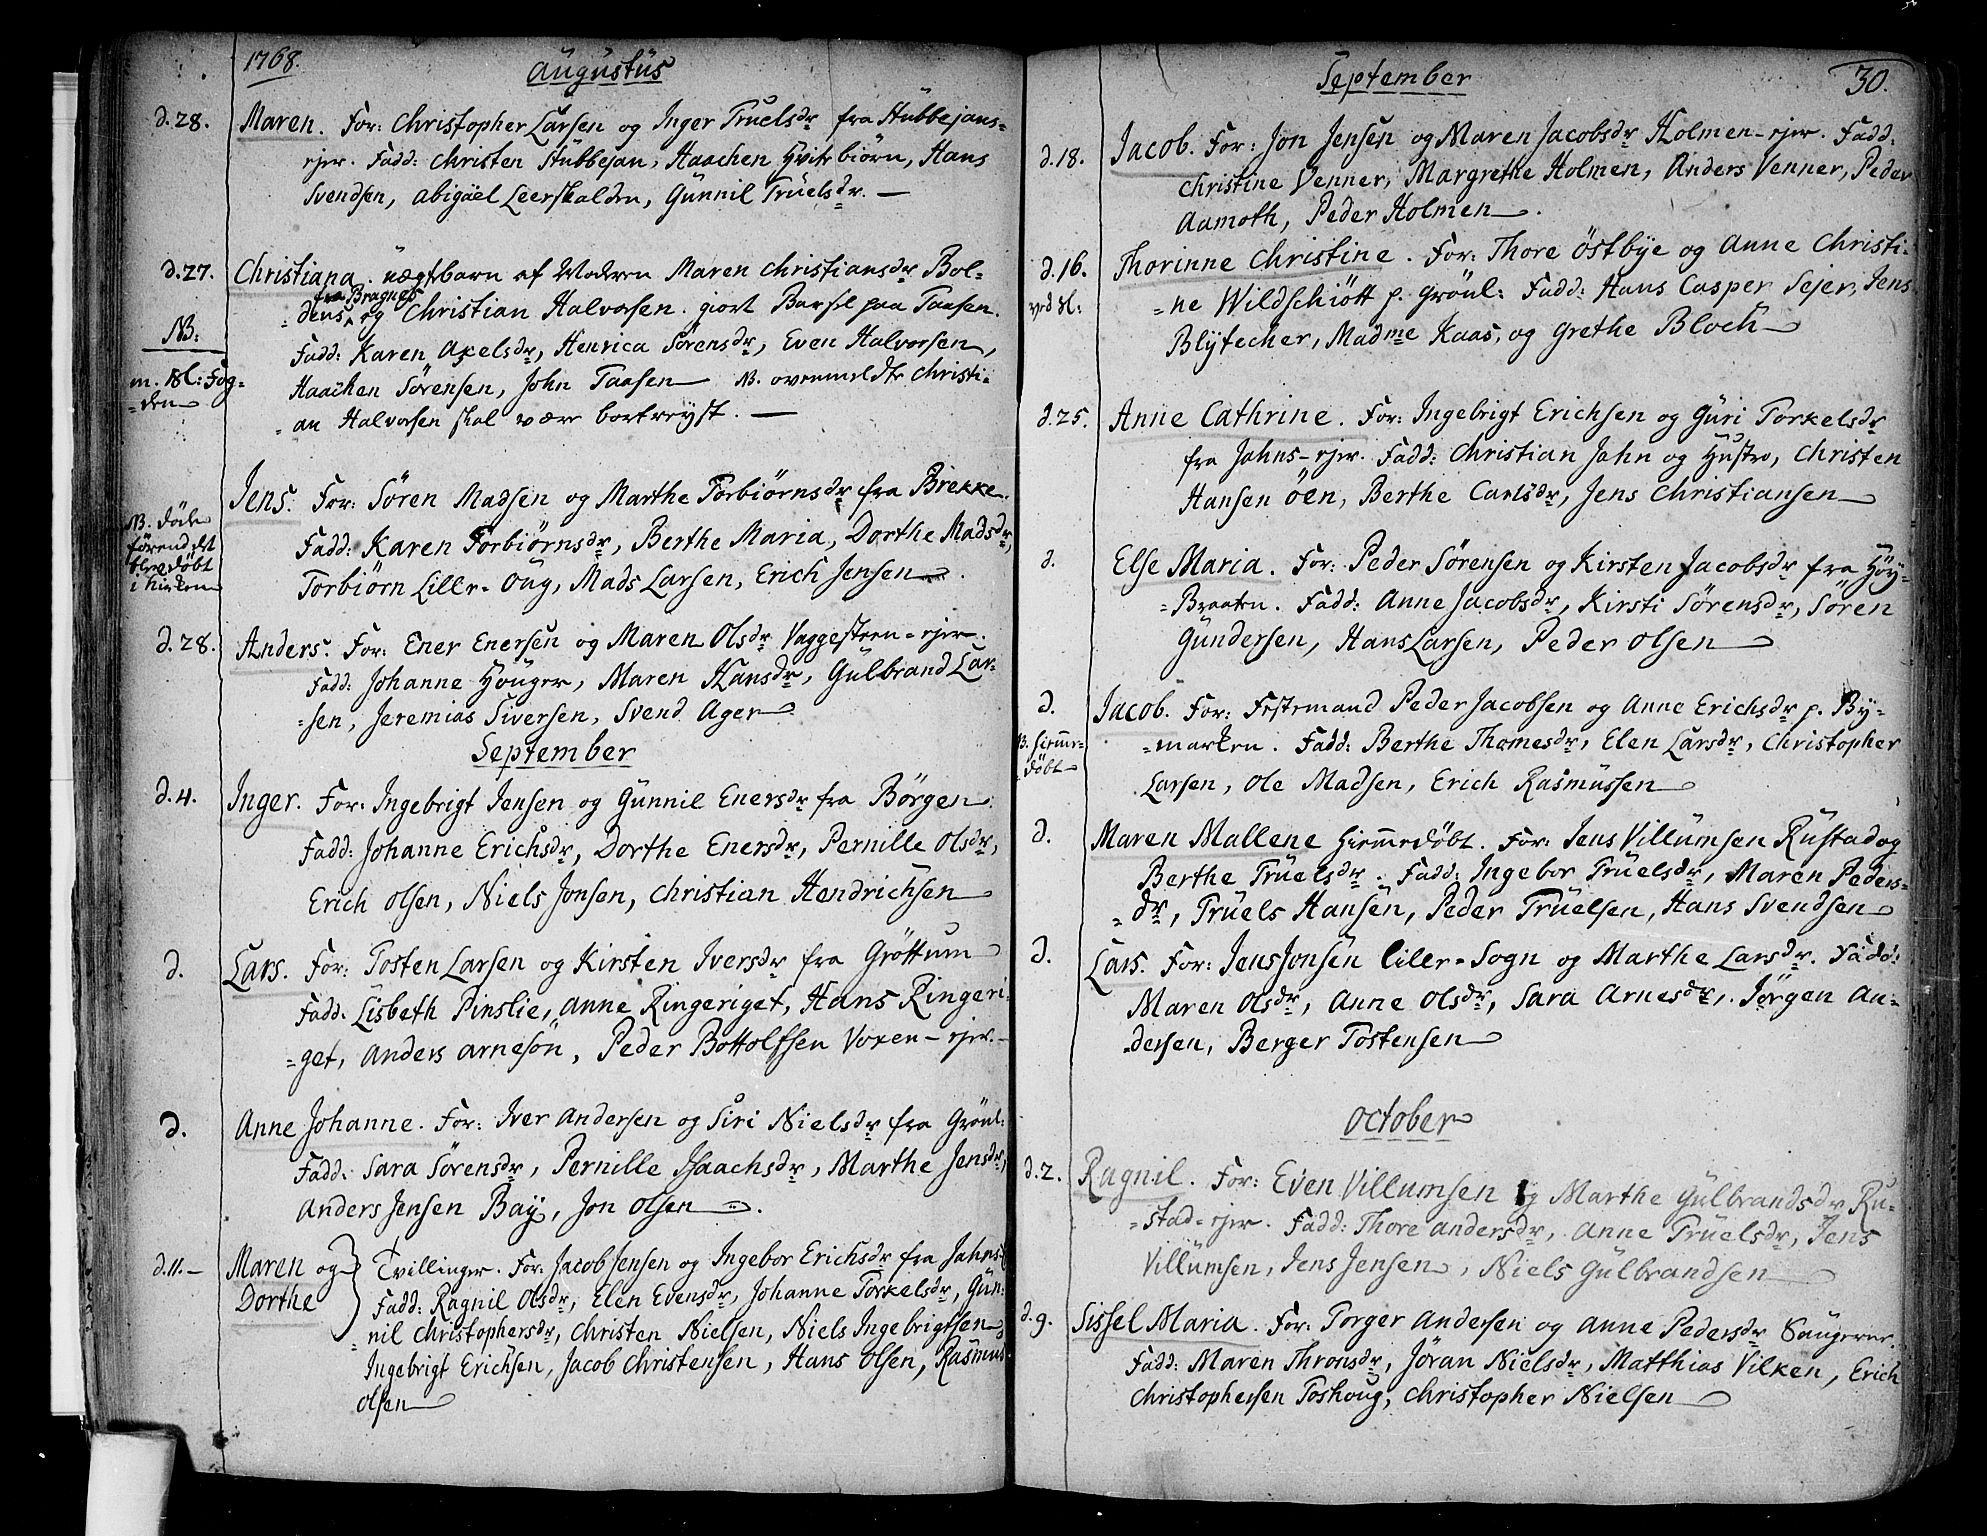 1768.
Augustus
d. 28. Maren. For: Christopher Larsen og Inger Truelsdr fra Stubbejans-
ejer. Fadd: Christen Stubbejan, Haachen Hvitebiörn, Hans
Svendsen, Abigäel Leerskalden, Gunnil Truelsdr. —
d. 27. Christiana. uægtbarn af Moderen Maren Christiansdr Bol-
fra Bragnes
-dens og Christian Halvorsen. giort Barsel paa Taasen.
NB:
Fadd: Karen Axelsdr, Henrica Sörensdr, Even Halvorsen,
m. Bl: Fog-
-den
Haachen Sörensen, John Taasen — NB. ovenmeldte Christi-
-an Halvorsen skal være bortreyst. —
Jens. For: Sören Madsen og Marthe Torbiörnsdr fra Brekke.
NB. döde
förend det
blev döbt
i kirken
Fadd: Karen Torbiörnsdr, Berthe Maria, Dorthe Madsdr,
Torbiörn Lille-Öug, Mads Larsen, Erich Jensen.
d. 28. Anders. For: Ener Enersen og Maren Olsdr Vaggesteen-ejer.
Fadd: Johanne Höuger, Maren Hansdr, Gulbrand Lar-
-sen, Jeremias Siversen, Svend Ager
September
d. 4. Inger. For: Ingebrigt Jensen og Gunnil Enersdr fra Börgen.
Fadd: Johanne Erichsdr, Dorthe Enersdr, Pernille Olsdr,
Erich Olsen, Niels Jonsen, Christian Hendrichsen
d. Lars. For: Tosten Larsen og Kirsten Iversdr fra Gröttum
Fadd: Lisbeth Pinslie, Anne Ringeriget, Hans Ringeri-
-get, Anders Arnesön, Peder Bottolfsen Voxen-ejer. —
d. Anne Johanne. For: Iver Andersen og Siri Nielsdr fra Grönl:
Fadd: Sara Sörensdr, Pernille Isaachsdr, Marthe Jensdr,
Anders Jensen Bay, Jon Olsen.
d. 11. — Maren og
Dorthe
Tvillinger. For: Jacob Jensen og Ingebor Erichsdr fra Jahns-
Fadd: Ragnil Olsdr, Elen Evensdr, Johanne Torkelsdr, Gün-
-nil Christophersdr, Christen Nielsen, Niels Ingebrigtsen,
Ingebrigt Erichsen, Jacob Christensen, Hans Olsen, Rasmus
Olsen
September
30.
d. 18. Jacob. For: Jon Jensen og Maren Jacobsdr Holmen-ejer. Fadd:
Christine Venner, Margrethe Holmen, Anders Venner, Peder
Aamoth, Peder Holmen.
d. 16. Thorinne Christine. For: Thore Östbye og Anne Christi-
ved Bl:
-ne Wildschiött p. Grönl: Fadd: Hans Casper Sejer, Jens
Blytecher, Madme Kaas, og Grethe Bloch
d. 25. Anne Cathrine. For: Ingebrigt Erichsen og Guri Torkelsdr
fra Jahns-ejer. Fadd: Christian Jahn og Hustro, Christen
Hansen Öen, Berthe Carlsdr, Jens Christiansen
d. Else Maria. For: Peder Sörensen og Kirsten Jacobsdr fra Höy-
-Braaten. Fadd: Anne Jacobsdr, Kirsti Sörensdr, Sören
Gundersen, Hans Larsen, Peder Olsen
d. Jacob. For: Festemand Peder Jacobsen og Anne Erichsdr p. By-
NB. hiemme-
döbt
-marken. Fadd: Berthe Thomesdr, Elen Larsdr, Christopher
Larsen, Ole Madsen, Erich Rasmussen
d. Maren Mallene hiemmedöbt. For: Jens Villumsen Rustad og
Berthe Truelsdr. Fadd: Ingebor Truelsdr, Maren Peders-
-dr, Truels Hansen, Peder Truelsen, Hans Svendsen
d. Lars. For: Jens Jonsen Lille-Sogn og Marthe Larsdr. Fadd:
Maren Olsdr, Anne Olsdr, Sara Arnesdr, Jörgen An-
-dersen, Berger Tostensen
October
d. 2. Ragnil. For: Even Villumsen og Marthe Gulbrandsdr Ru-
-stad-ejer. Fadd: Thore Andersdr, Anne Truelsdr, Jens
Villumsen, Jens Jensen, Niels Gulbrandsen
d. 9. Sissel Maria. For: Torger Andersen og Anne Pedersdr Saugerne.
Fadd: Maren Thronsdr, Jöran Nielsdr, Matthias Vilken, Erich
Christophersen Toskoug, Christopher Nielsen